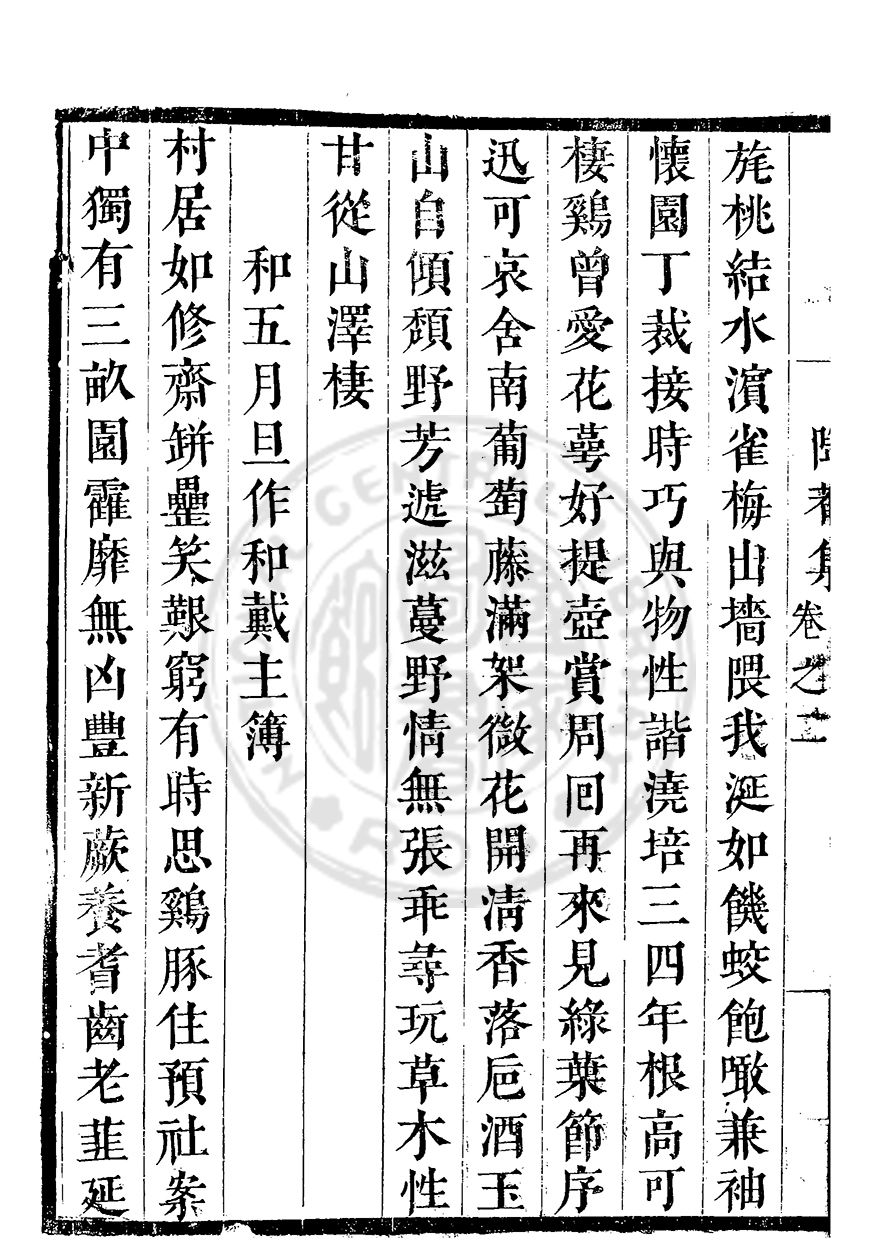 旄桃結水濵雀梅出墻隈我涎如饑蛟飽噉兼袖
懷園丁裁接時巧與物性諧澆培三四年根高可
棲鷄曾愛花蕚好提壺賞周囘再來見綠葉節序
迅可哀舍南葡萄藤滿架微花開淸香落巵酒玉
山自傾頹野芳遞滋蔓野情無張乖尋玩草木性
甘從山澤棲
和五月旦作和戴主簿
村居如修齋缾罍笑艱窮有時思鷄豚住預社案
中獨有三畝園霍靡無凶豊新蕨養耆齒老韮延
集卷之二